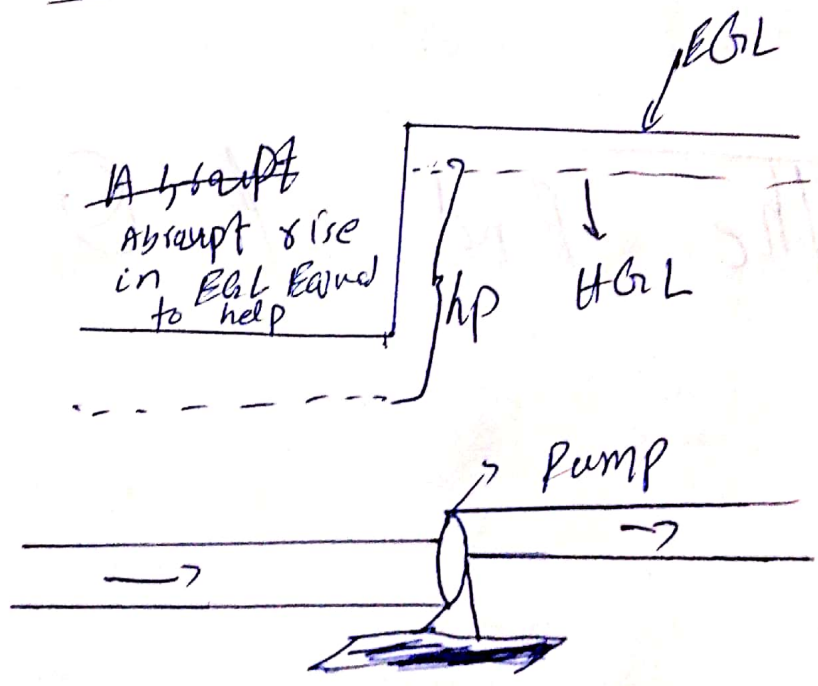 EGL
Abrupt
Abrupt rise
in EGL Equal
to help
hp
HGL
Pump